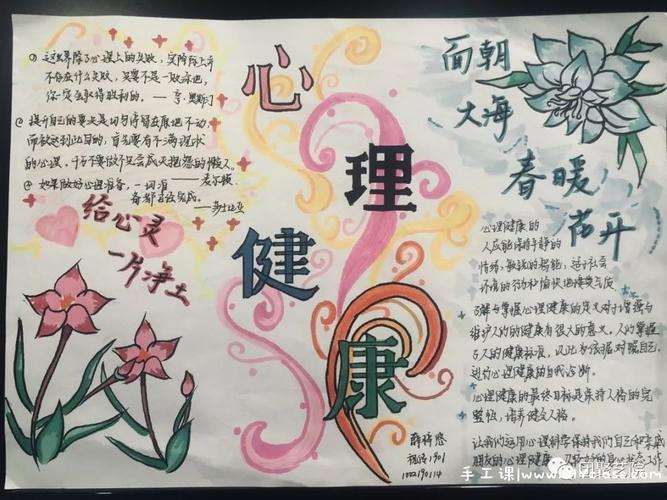 ① 这世界除了心理上的失败，实际上并
不存在什么失败，只要不是一败涂地，
你一定会取得胜利的。——亨·奥斯汀
② 提升自己的要求是切勿停留在原地不动，
而欲达到此目的，首先要有不满现状
的心理。
③ 如果做好心理准备，一切准
备都已经完成。
——莎士比亚
给心灵
一片净土
心
理
健
康
面朝
大海
春暖
花开
心理健康的
人应能保持平静的
情绪，敏锐的智能，适于社会
环境的行为和愉快的
了解与掌握心理健康的定义对于增强与
维护人们的健康有很大的意义。人们掌握
了人的健康标准，以此为依据对照自己，
进行心理健康的自我诊断。
心理健康的最终目标是保持人格的完
整性，培养健全人格。
让我们运用心理科学保持我们自己和亲戚
朋友的心理健康，
1901
1002190114
手工课